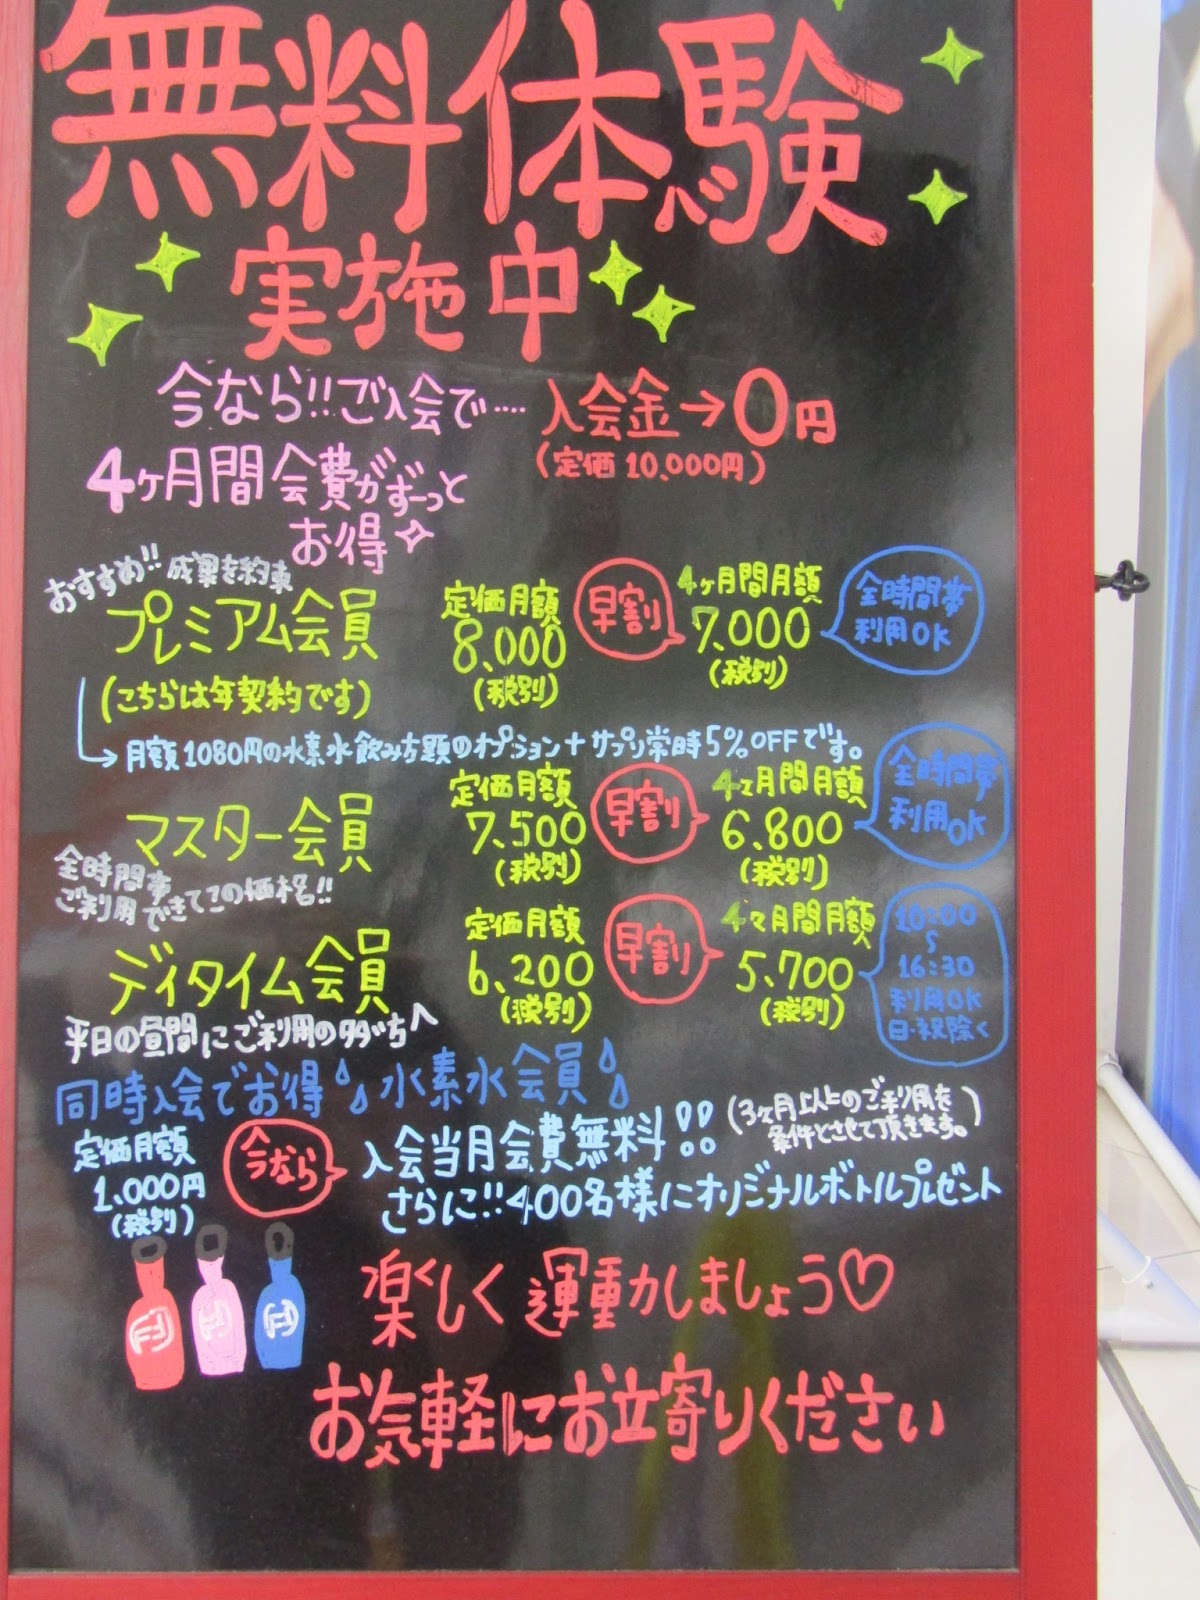 無料体験
実施中
今なら!!ご入会で‥‥
入会金→0円
(定価10,000円)
4ヶ月間会費がずーっと
お得
おすすめ!!成果を約束
プレミアム会員
(こちらは年契約です)
定価月額
8,000
(税別)
早割
4ヶ月間月額
7,000
(税別)
全時間帯
利用OK
→月額1080円の水素水飲み放題のオプション+サプリ常時5%OFFです。
マスター会員
全時間帯
ご利用できてこの価格!!
定価月額
7,500
(税別)
早割
4ヶ月間月額
6,800
(税別)
全時間帯
利用OK
デイタイム会員
平日の昼間にご利用の方々へ
定価月額
6,200
(税別)
早割
4ヶ月間月額
5,700
(税別)
10:00
~
16:30
利用OK
日・祝除く
同時入会でお得 水素水会員
定価月額
1,000円
(税別)
今なら
入会当月会費無料!!
(3ヶ月以上のご利用を
条件とさせて頂きます。)
さらに!!400名様にオリジナルボトルプレゼント
楽しく運動しましょう♡
お気軽にお立寄りください